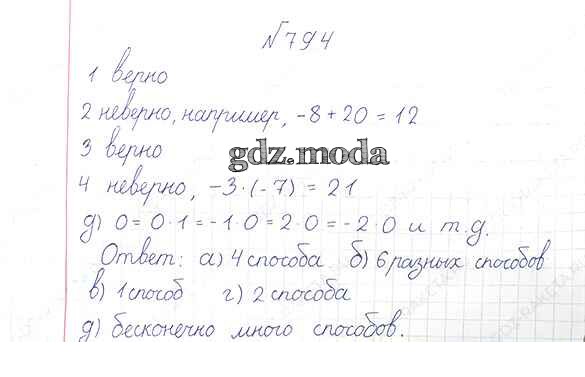 № 794
1 верно
2 неверно, например, -8 + 20 = 12
3 верно
gdz.moda
4 неверно, -3·(-7) = 21
д) 0 = 0·1 = -1·0 = 2·0 = -2·0 и т.д.
Ответ: а) 4 способа б) 6 разных способов
в) 1 способ г) 2 способа
д) бесконечно много способов.